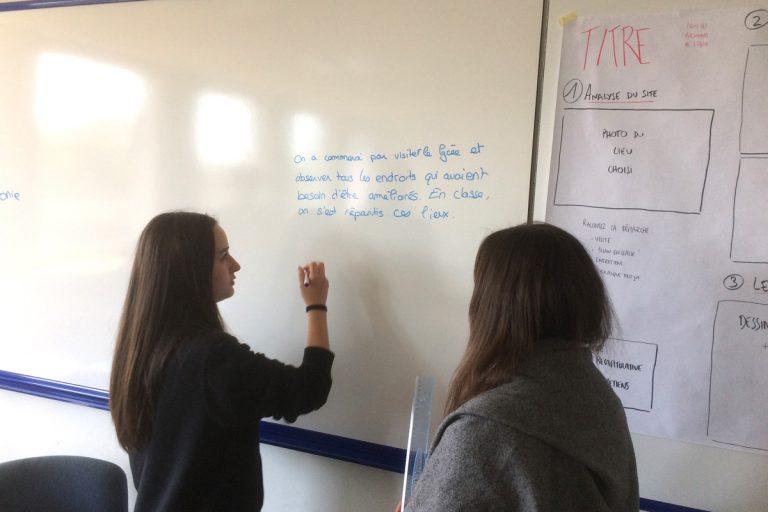 onie
On a commencé par visiter le lycée et
observer tous les endroits qui avaient
besoin d'être améliorés. En classe,
on s'est répartis ces lieux.
TITRE
① ANALYSE DU SITE
PHOTO DU
LIEU
CHOISI
RACONTEZ LA DÉMARCHE
- VISITE
ENTRETIENS
RÉCAPITULATIVE
ETIENS
②
③ LE
DESSIN
+